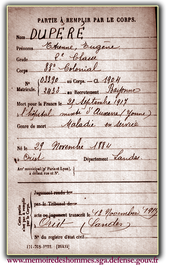 PARTIE À REMPLIR PAR LE CORPS.
Nom DUPÉRÉ
Prénoms Etienne Eugène
Grade 2e Classe
Corps Colonial
N° 03390 au Corps. — Cl. 1904
Matricule. au Recrutement Bayonne
Mort pour la France le 21 Septembre 1917
à l'hôpital d'Auxerre (Yonne)
Genre de mort Maladie en service
Né le 29 Novembre 1884
à Orist Département Landes
Arr municipal (p Paris et Lyon), à défaut rue et N°.
Jugement rendu le
par le Tribunal de
acte ou jugement transcrit le 12 Novembre 1917
à Orist (Landes)
N° du registre d'état civil
www.memoiredeshommes.sga.defense.gouv.fr